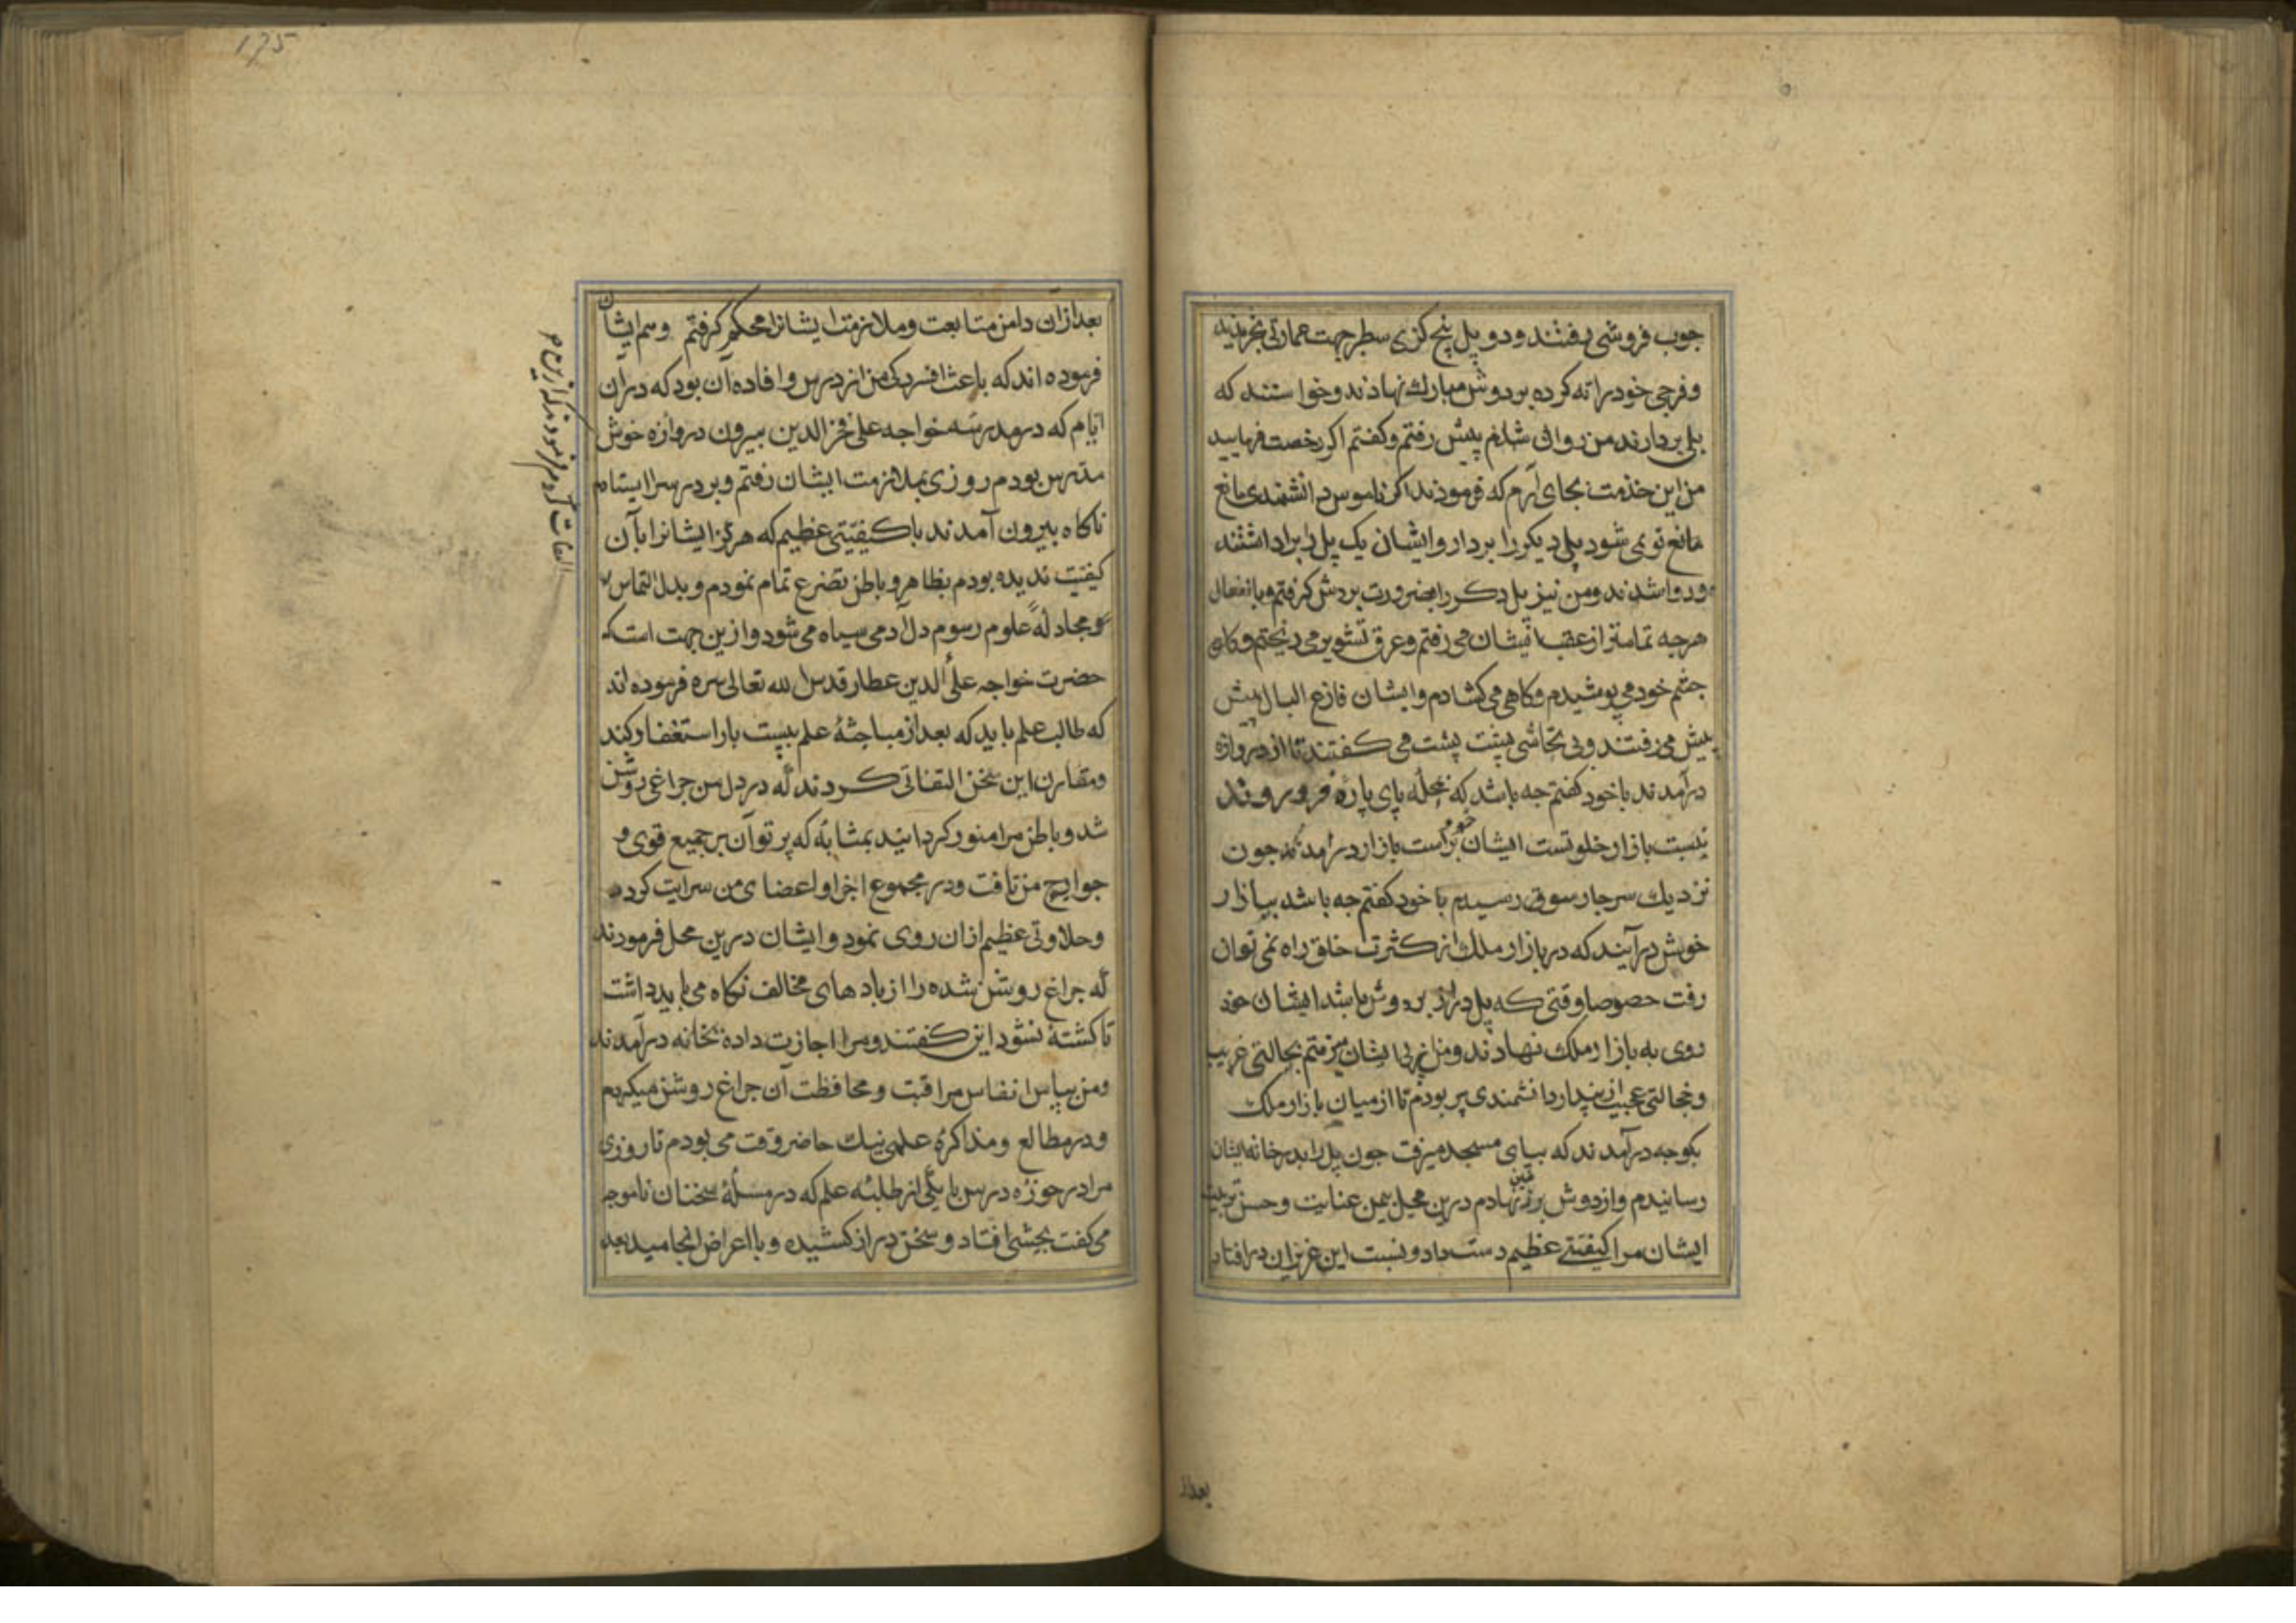 جوب فروشی رفتند و دو پل پنج کزی سطبر جهت عمارتی بخریدند
و فرجی خود را ته کرده بر دوش مبارک نهادند و خواستند که
پل بردارند من روان شدم پیش رفتم و کفتم اکر رخصت فرمایید
من این خذمت بجای آرم که فرمودند اکر ناموس دانشمندی مانع
مانع تو نمی شود پل دیکر را بردار و ایشان یک پل را برداشتند
و روا شدند و من نیز پل دکر را بضرورت بر دوش کرفتم و با انفعال
هرجه تمامتر از عقب ایشان می رفتم و عرق تشویر می ریختم و کاه
جشم خود می پوشیدم و کاهی می کشادم و ایشان فارغ البال پیش
پیش می رفتند و بی تحاشی پشت پشت می کفتند تا از دروازه
درآمدند با خود کفتم جه باشد که بمحله پای پاره فرو روند
نسبت بازار خلوتست ایشان خود براست بازار درآمدند جون
نزدیک سر جارسوق رسیدم با خود کفتم جه باشد ببازار
خوش درآیند که در بازار ملک از کثرت خلق راه نمی توان
رفت خصوصا وقتی که پل دراز بر دوش باشد ایشان خود
روی به بازار ملک نهادند و من از پی ایشان میرفتم بحالتی غریب
و خجالتی عجیب از پندار دانشمندی پر بودم تا از میان بازار ملک
بکوجه درآمدند که بپای مسجد میرفت جون پل را بدر خانه ایشان
رسانیدم و از دوش بر زمین نهادم درین محل بیمن عنایت و حسن تربیت
ایشان مرا کیفیتی عظیم دست داد و نسبت این عزیزان در افتاد
بعداز
175
بعد ازان دامن متابعت و ملازمت ایشانرا محکم کرفتم و هم ایشان
فرموده اند که باعث افسردکی من از درس و افاده آن بود که دران
ایام که در مدرسه خواجه علی فخر الدین بیرون دروازه خوش
مدرس بودم روزی بملازمت ایشان رفتم و بر در سرا ایستادم
ناکاه بیرون آمدند با کیفیتی عظیم که هرکز ایشانرا بآن
کیفیت ندیده بودم بظاهر و باطن تضرع تمام نمودم و بدل التماس
و مجادلهٔ علوم رسوم دل آدمی سیاه می شود و ازین جهت است که
حضرت خواجه علأ الدین عطار قدس الله تعالی سره فرموده اند
که طالب علم باید که بعد از مباحثهٔ علم بیست بار استغفار کند
و مقارن این سخن التفاتی کردند که در دل من جراغی روشن
شد و باطن مرا منور کردانید بمثابهٔ که پرتو آن بر جمیع قوی و
جوارح من تافت و در مجموع اجزا و اعضای من سرایت کرد
و حلاوتی عظیم ازان روی نمود و ایشان درین محل فرمودند
که جراغ روشن شده را از بادهای مخالف نکاه می باید داشت
تا کشته نشود این کفتند و مرا اجازت داده بخانه درآمدند
و من بپاس انفاس مراقبت و محافظت آن جراغ روشن میکردم
و در مطالع و مذاکرهٔ علمی نیک حاضر وقت می بودم تا روزی
مرا در حوزه درس با یکی از طلبه علم که در مسئلهٔ سخنان ناموجه
می کفت بحثی افتاد و سخن دراز کشیده و با اعراض انجامید بعد
التفات کردم فرمودند که از بس